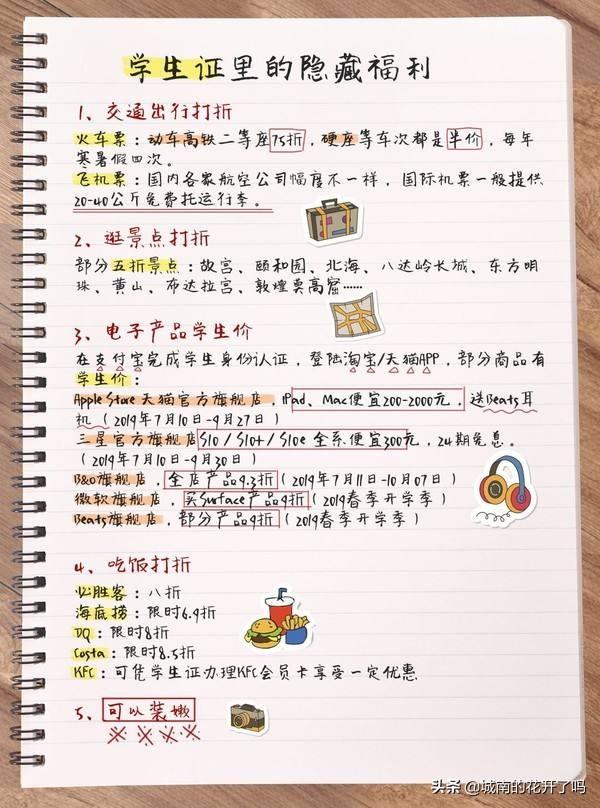 学生证里的隐藏福利
1、交通出行打折
火车票：动车高铁二等座75折，硬座等车次都是半价，每年
寒暑假四次。
飞机票：国内各家航空公司幅度不一样，国际机票一般提供
20-40公斤免费托运行李。
2、逛景点打折
部分五折景点：故宫、颐和园、北海、八达岭长城、东方明
珠、黄山、布达拉宫、敦煌莫高窟……
3、电子产品学生价
在支付宝完成学生身份认证，登陆淘宝/天猫APP，部分商品有
学生价：
Apple Store天猫官方旗舰店，iPad、Mac便宜200-2000元，送Beats耳
机（2019年7月10日-9月27日）
三星官方旗舰店S10/S10+/S10e全系便宜300元，24期免息。
（2019年7月10日-9月30日）
B&O旗舰店，全店产品9.3折（2019年7月11日-10月07日）
微软旗舰店，买Surface产品9折（2019春季开学季）
Beats旗舰店，部分产品9折（2019春季开学季）
4、吃饭打折
必胜客：八折
海底捞：限时6.9折
DQ：限时8折
Costa：限时8.5折
KFC：可凭学生证办理KFC会员卡享受一定优惠
5、可以装嫩
头条@城南的花开了吗